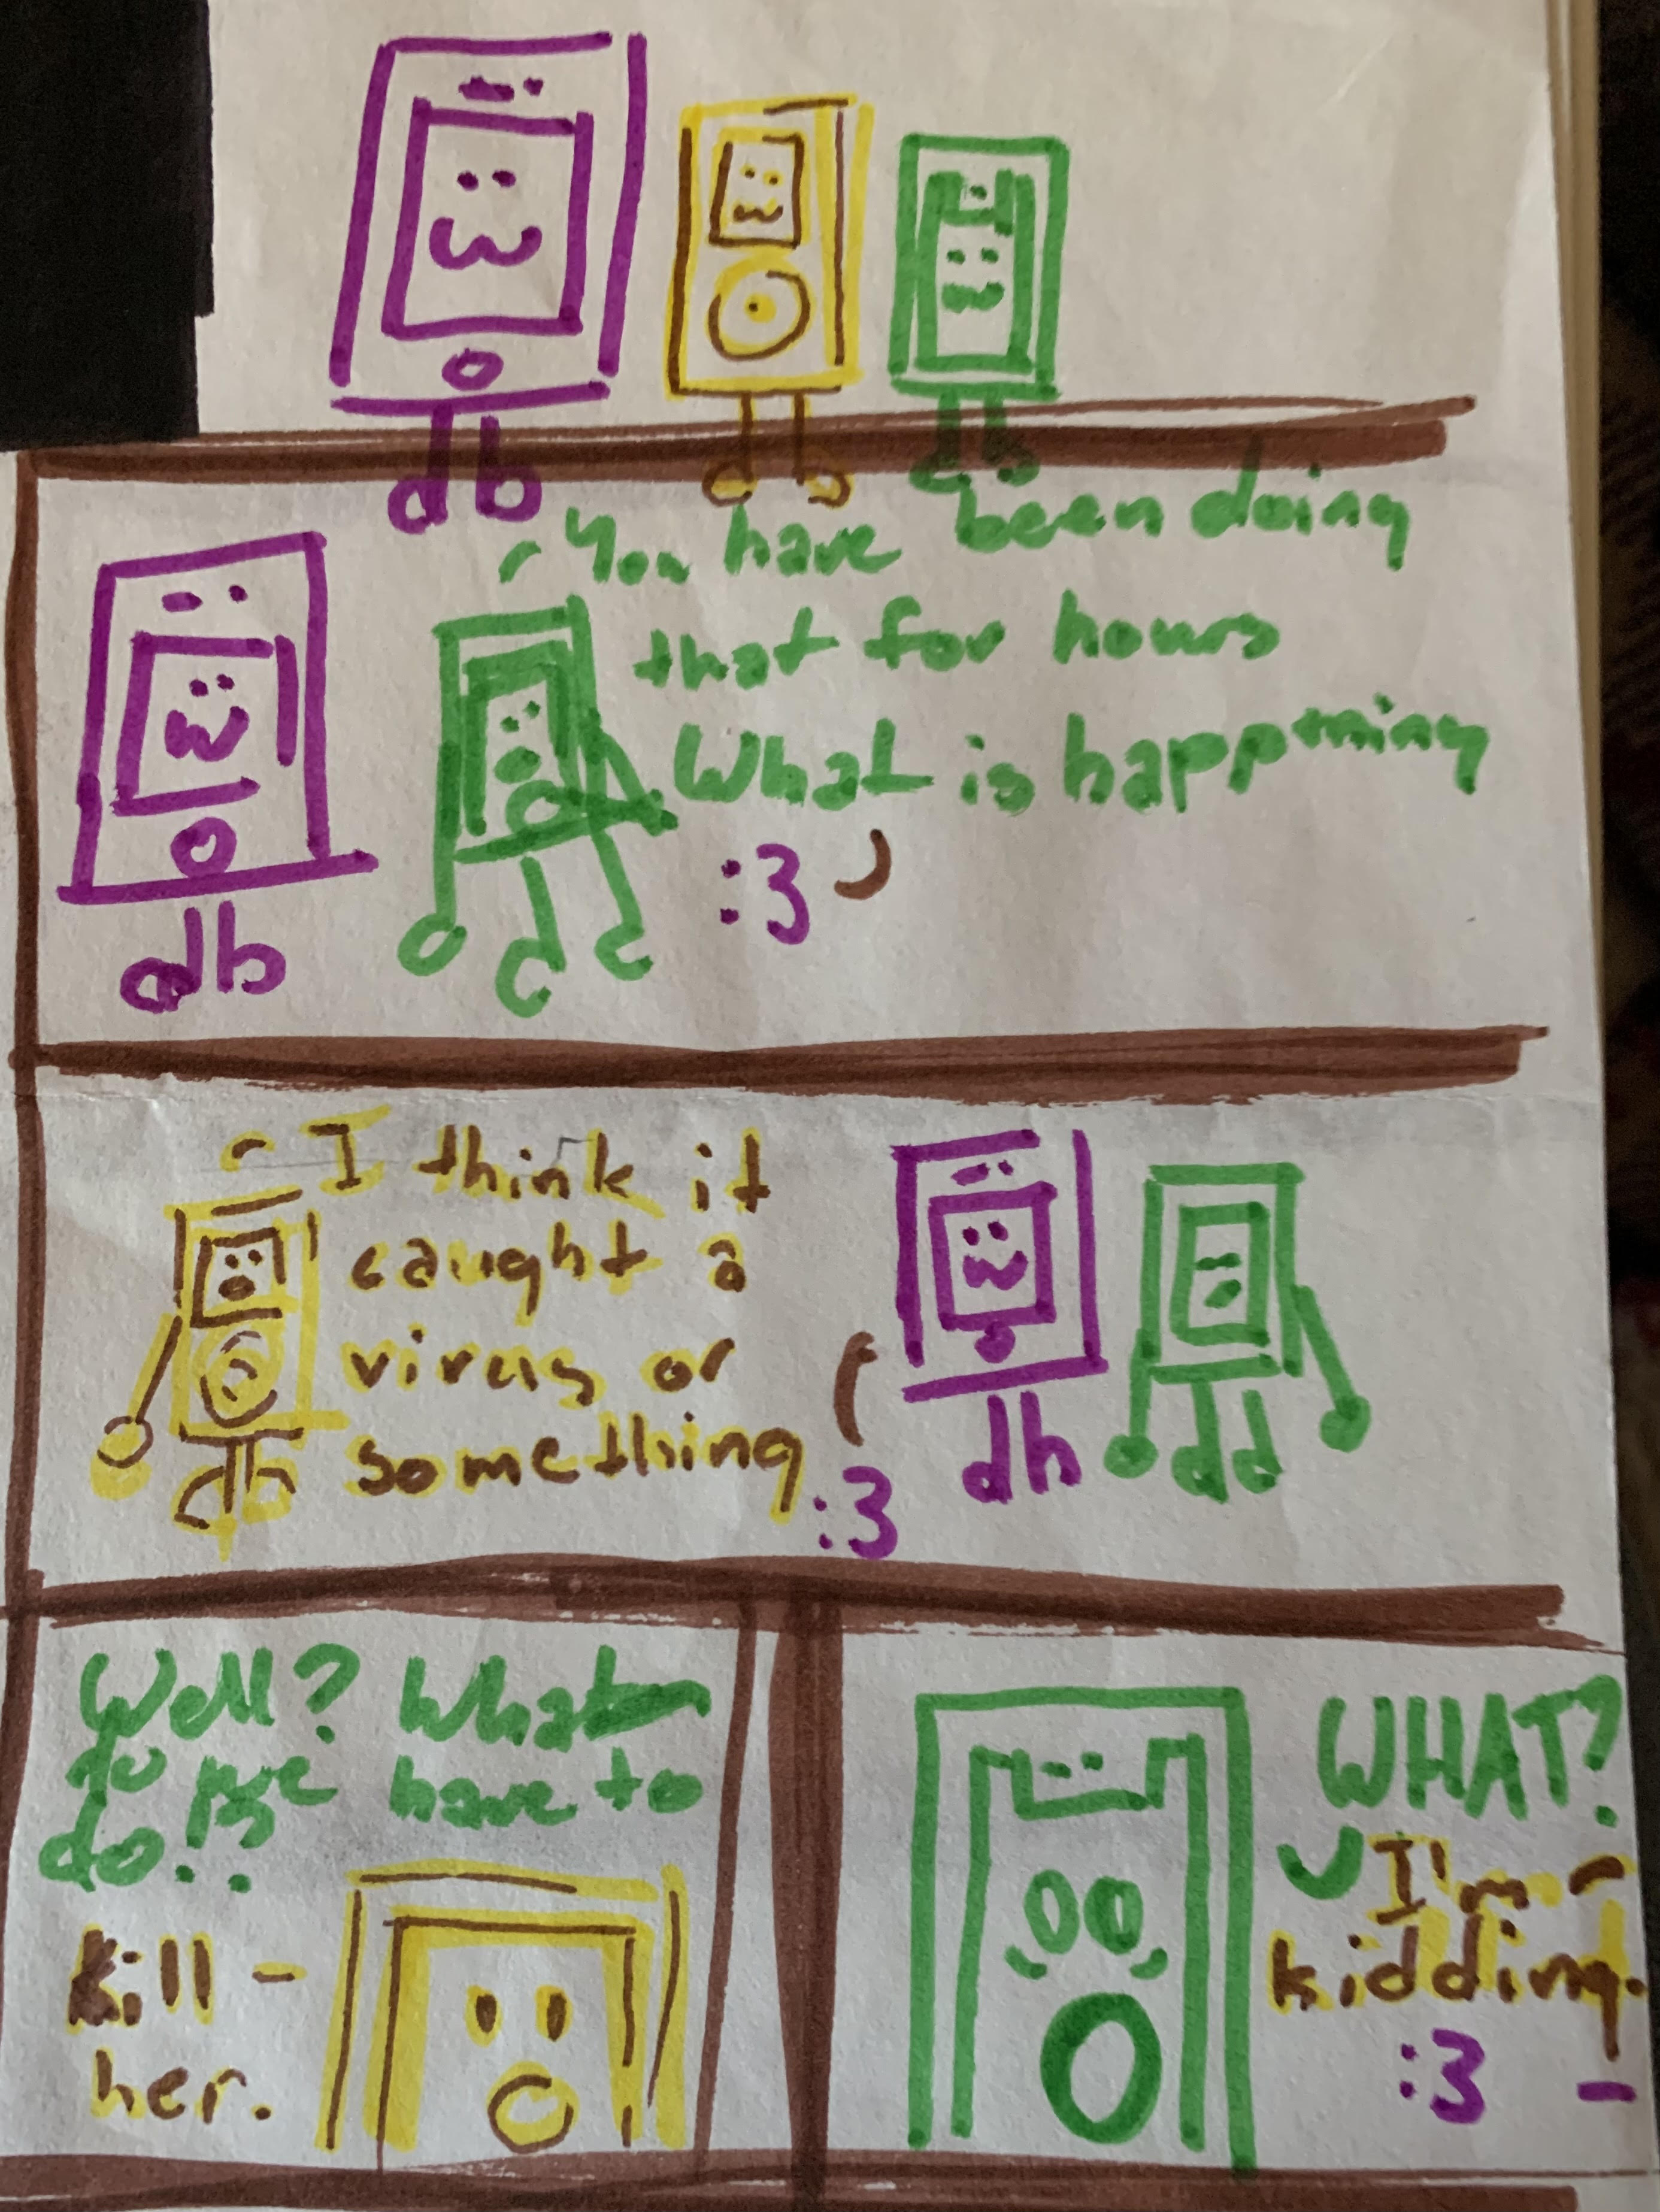 You have been doing
that for hours
What is happening
:3
I think it
caught a
virus or
something
:3
Well? What
do we have to
do!?
Kill
her.
WHAT?
I'm
kidding.
:3